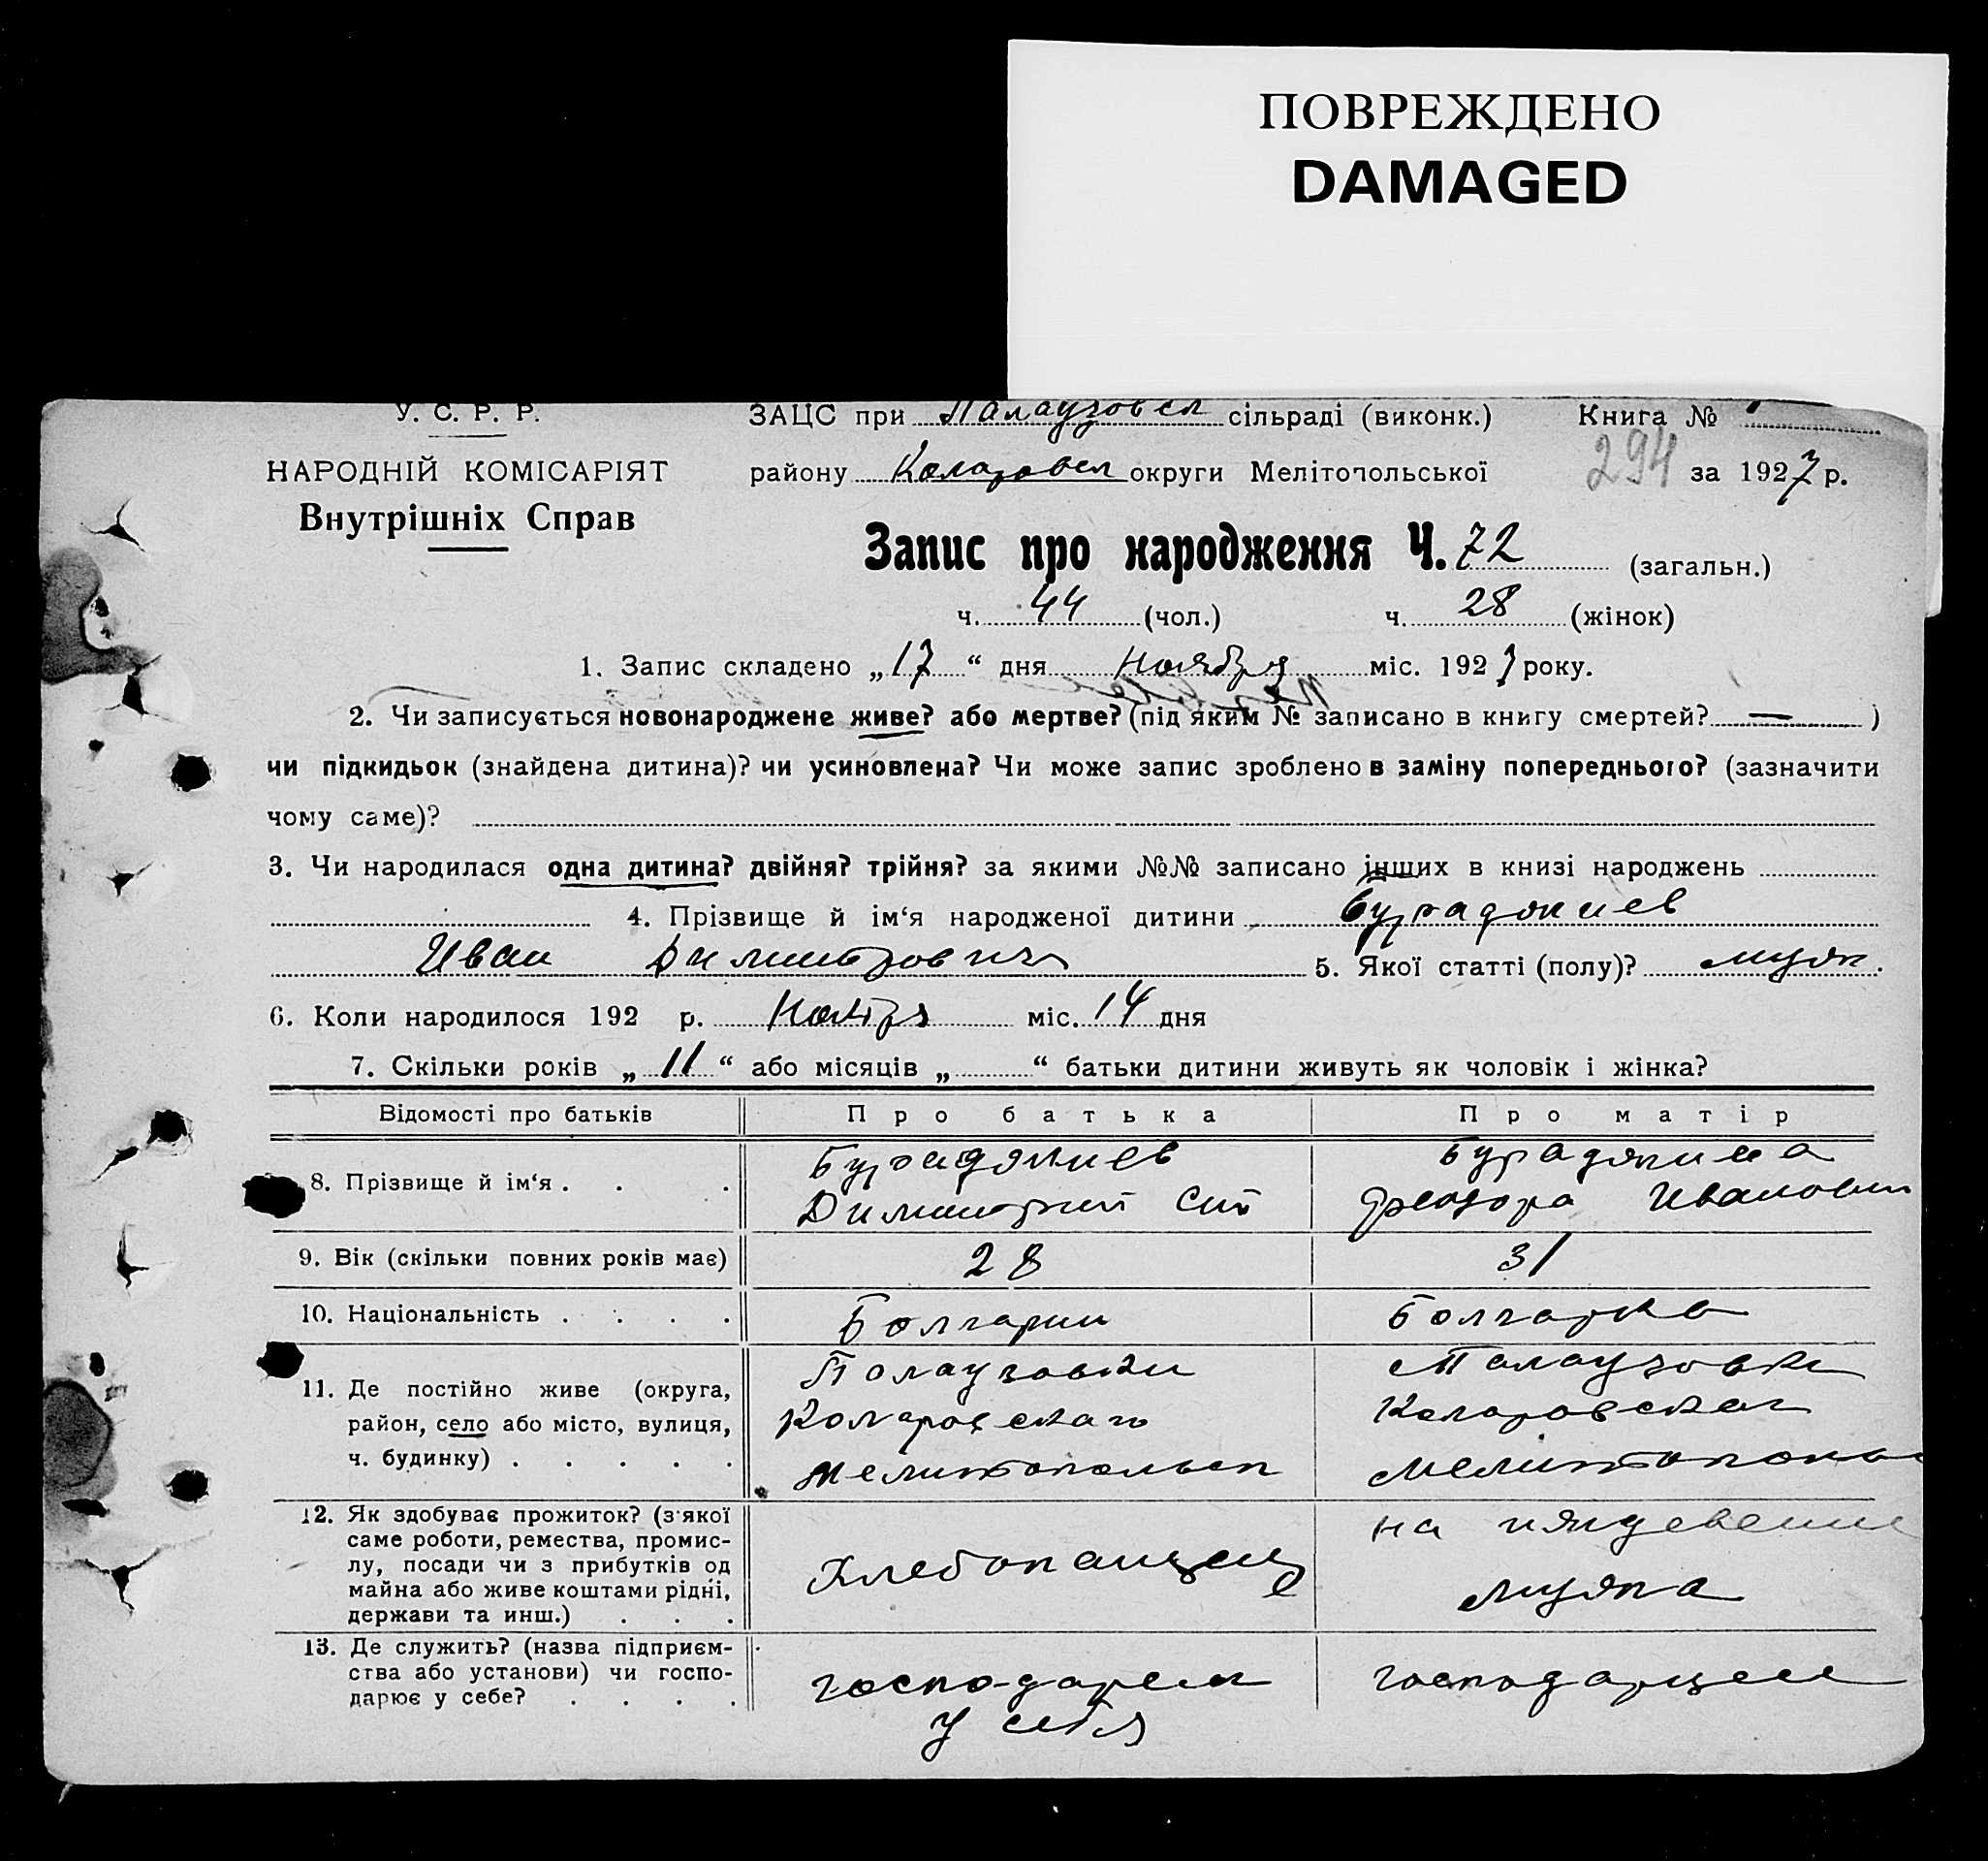 ПОВРЕЖДЕНО
DAMAGED
У. С. Р. Р.
НАРОДНІЙ КОМІСАРІЯТ
Внутрішніх Справ
ЗАЦС при Палаузовск сільраді (виконк.) Книга №
району Коларовск округи Мелітопольської 294 за 1927 р.
Запис про народження Ч. 72 (загальн.)
ч. 44 (чол.) ч. 28 (жінок)
1. Запис складено „17“ дня Ноября міс. 1927 року.
2. Чи записується новонароджене живе? або мертве? (під яким № записано в книгу смертей? — )
чи підкидьок (знайдена дитина)? чи усиновлена? Чи може запис зроблено в заміну попереднього? (зазначити
чому саме)?
3. Чи народилася одна дитина? двійня? трійня? за якими №№ записано інших в книзі народжень
4. Прізвище й ім‘я народженої дитини Бураджиев
Иван Димитрович 5. Якої статті (полу)? муж.
6. Коли народилося 192 р. Ноября міс. 14 дня
7. Скільки років „11“ або місяців „ “ батьки дитини живуть як чоловік і жінка?
Відомості про батьків Про батька Про матір
8. Прізвище й ім‘я . . . Бураджиев Бураджиева
Димитрий Феодора Иванов
9. Вік (скільки повних років має) 28 31
10. Національність . . . . Болгарин Болгарка
11. Де постійно живе (округа, район, село або місто, вулиця, ч. будинку) . . . . . Палаузовки Палаузовки
Коларовскаго Коларовскаг
Мелитопольск Мелитополь
12. Як здобуває прожиток? (з якої саме роботи, ремества, промислу, посади чи з прибутків од майна або живе коштами рідні, держави та инш.) . . . Хлебопащец на иждевение
мужа
13. Де служить? (назва підприємства або установи) чи господарює у себе? . . . . господарем
у себя